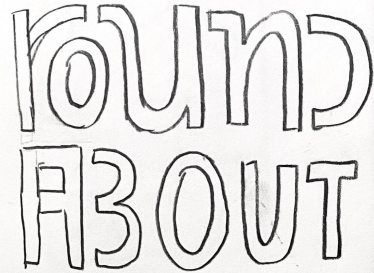 rounD
ABOUT